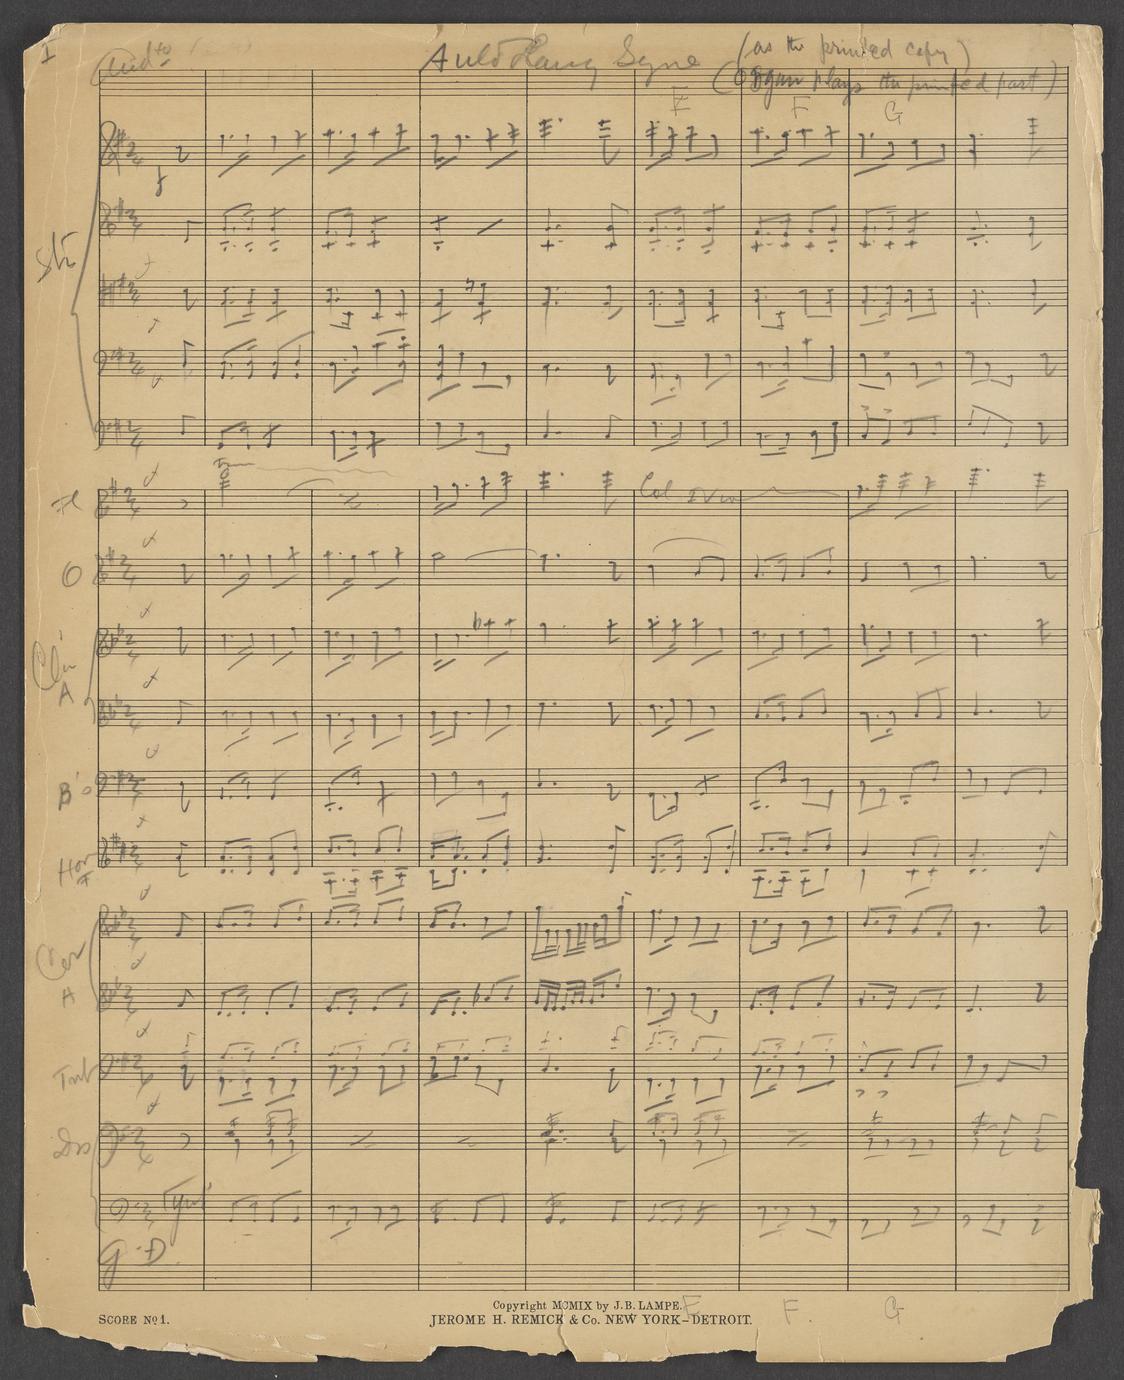 I
Andto
Auld Lang Syne (as the printed copy)
(Organ plays the printed part)
E F G
Str
Fl
Col I Vio
O
Cla
A
Bo
Hor
F
Cor
A
Trb
Drs
Tym
G D
E F G
Copyright MCMIX by J.B. LAMPE.
SCORE No 1. JEROME H. REMICK & Co. NEW YORK-DETROIT.